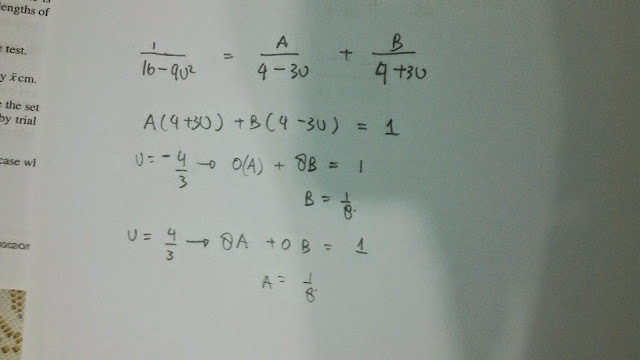 lengths of
test.
y x̄ cm.
the set
by trial
case wh
1/(16-9U²) = A/(4-3U) + B/(4+3U)
A(4+3U) + B(4-3U) = 1
U = -4/3 → 0(A) + 8B = 1
B = 1/8.
U = 4/3 → 8A + 0B = 1
A = 1/8.